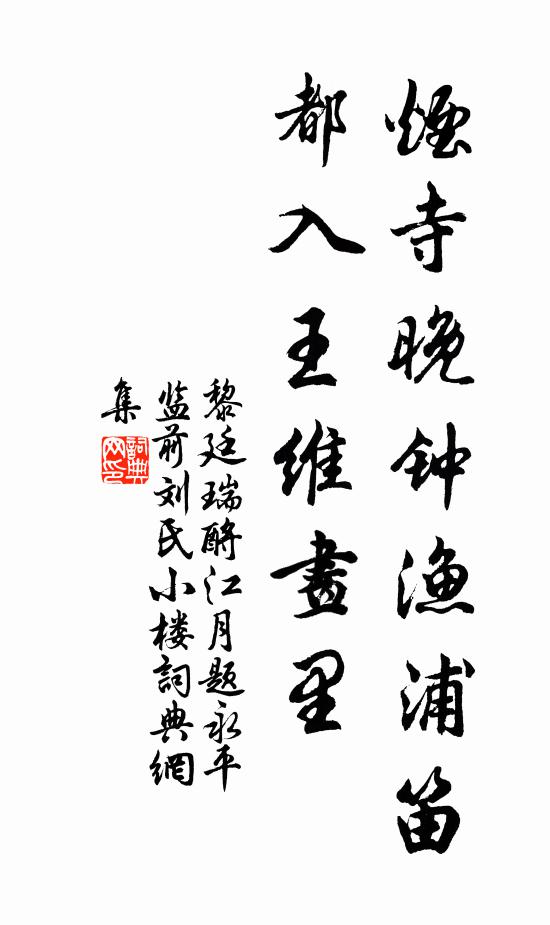 煙寺晚钟渔浦笛
都入王维畫里
黎廷瑞酹江月题永平
监前刘氏小楼詞典網
集
詞典
网印